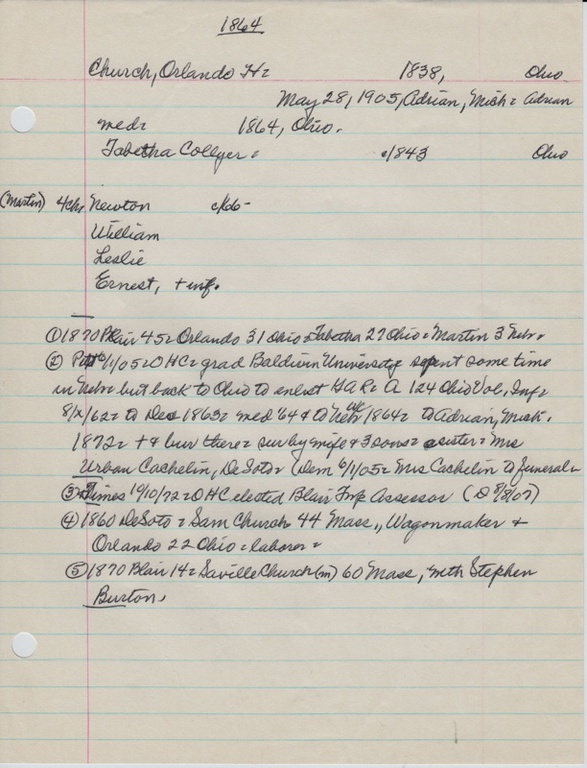 1864
Church, Orlando H= 1838, Ohio
May 28, 1905, Adrian, Mich= Adrian
med= 1864, Ohio.
Tabetha Collyer= c/1843 Ohio
(Martin) 4 chs Newton c/65-
William
Leslie
Ernest, + inf.
① 1870 Blair 45= Orlando 31 Ohio= Tabetha 27 Ohio= Martin 3 Nebr=
② 6/1/05= O H C= grad Baldwin University spent some time
in Nebr but back to Ohio to enlist GAR= A 124 Ohio Vol, Inf=
8/x/62= to Des 1863= med '64 & to Nebr 1864= to Adrian, Mich.
1872= + & bur there= sur by wife & 3 sons= sister= Mrs
Urban Cachelin, DeSoto= (Dem 6/1/05= Mrs Cachelin to funeral=
③ Times 10/72= O H C elected Blair Assessor (D 8/8/07)
④ 1860 DeSoto= Sam Church 44 Mass,, Wagonmaker +
Orlando 22 Ohio= laborer=
⑤ 1870 Blair 14= Saville Church (m) 60 Mass, with Stephen
Burton,